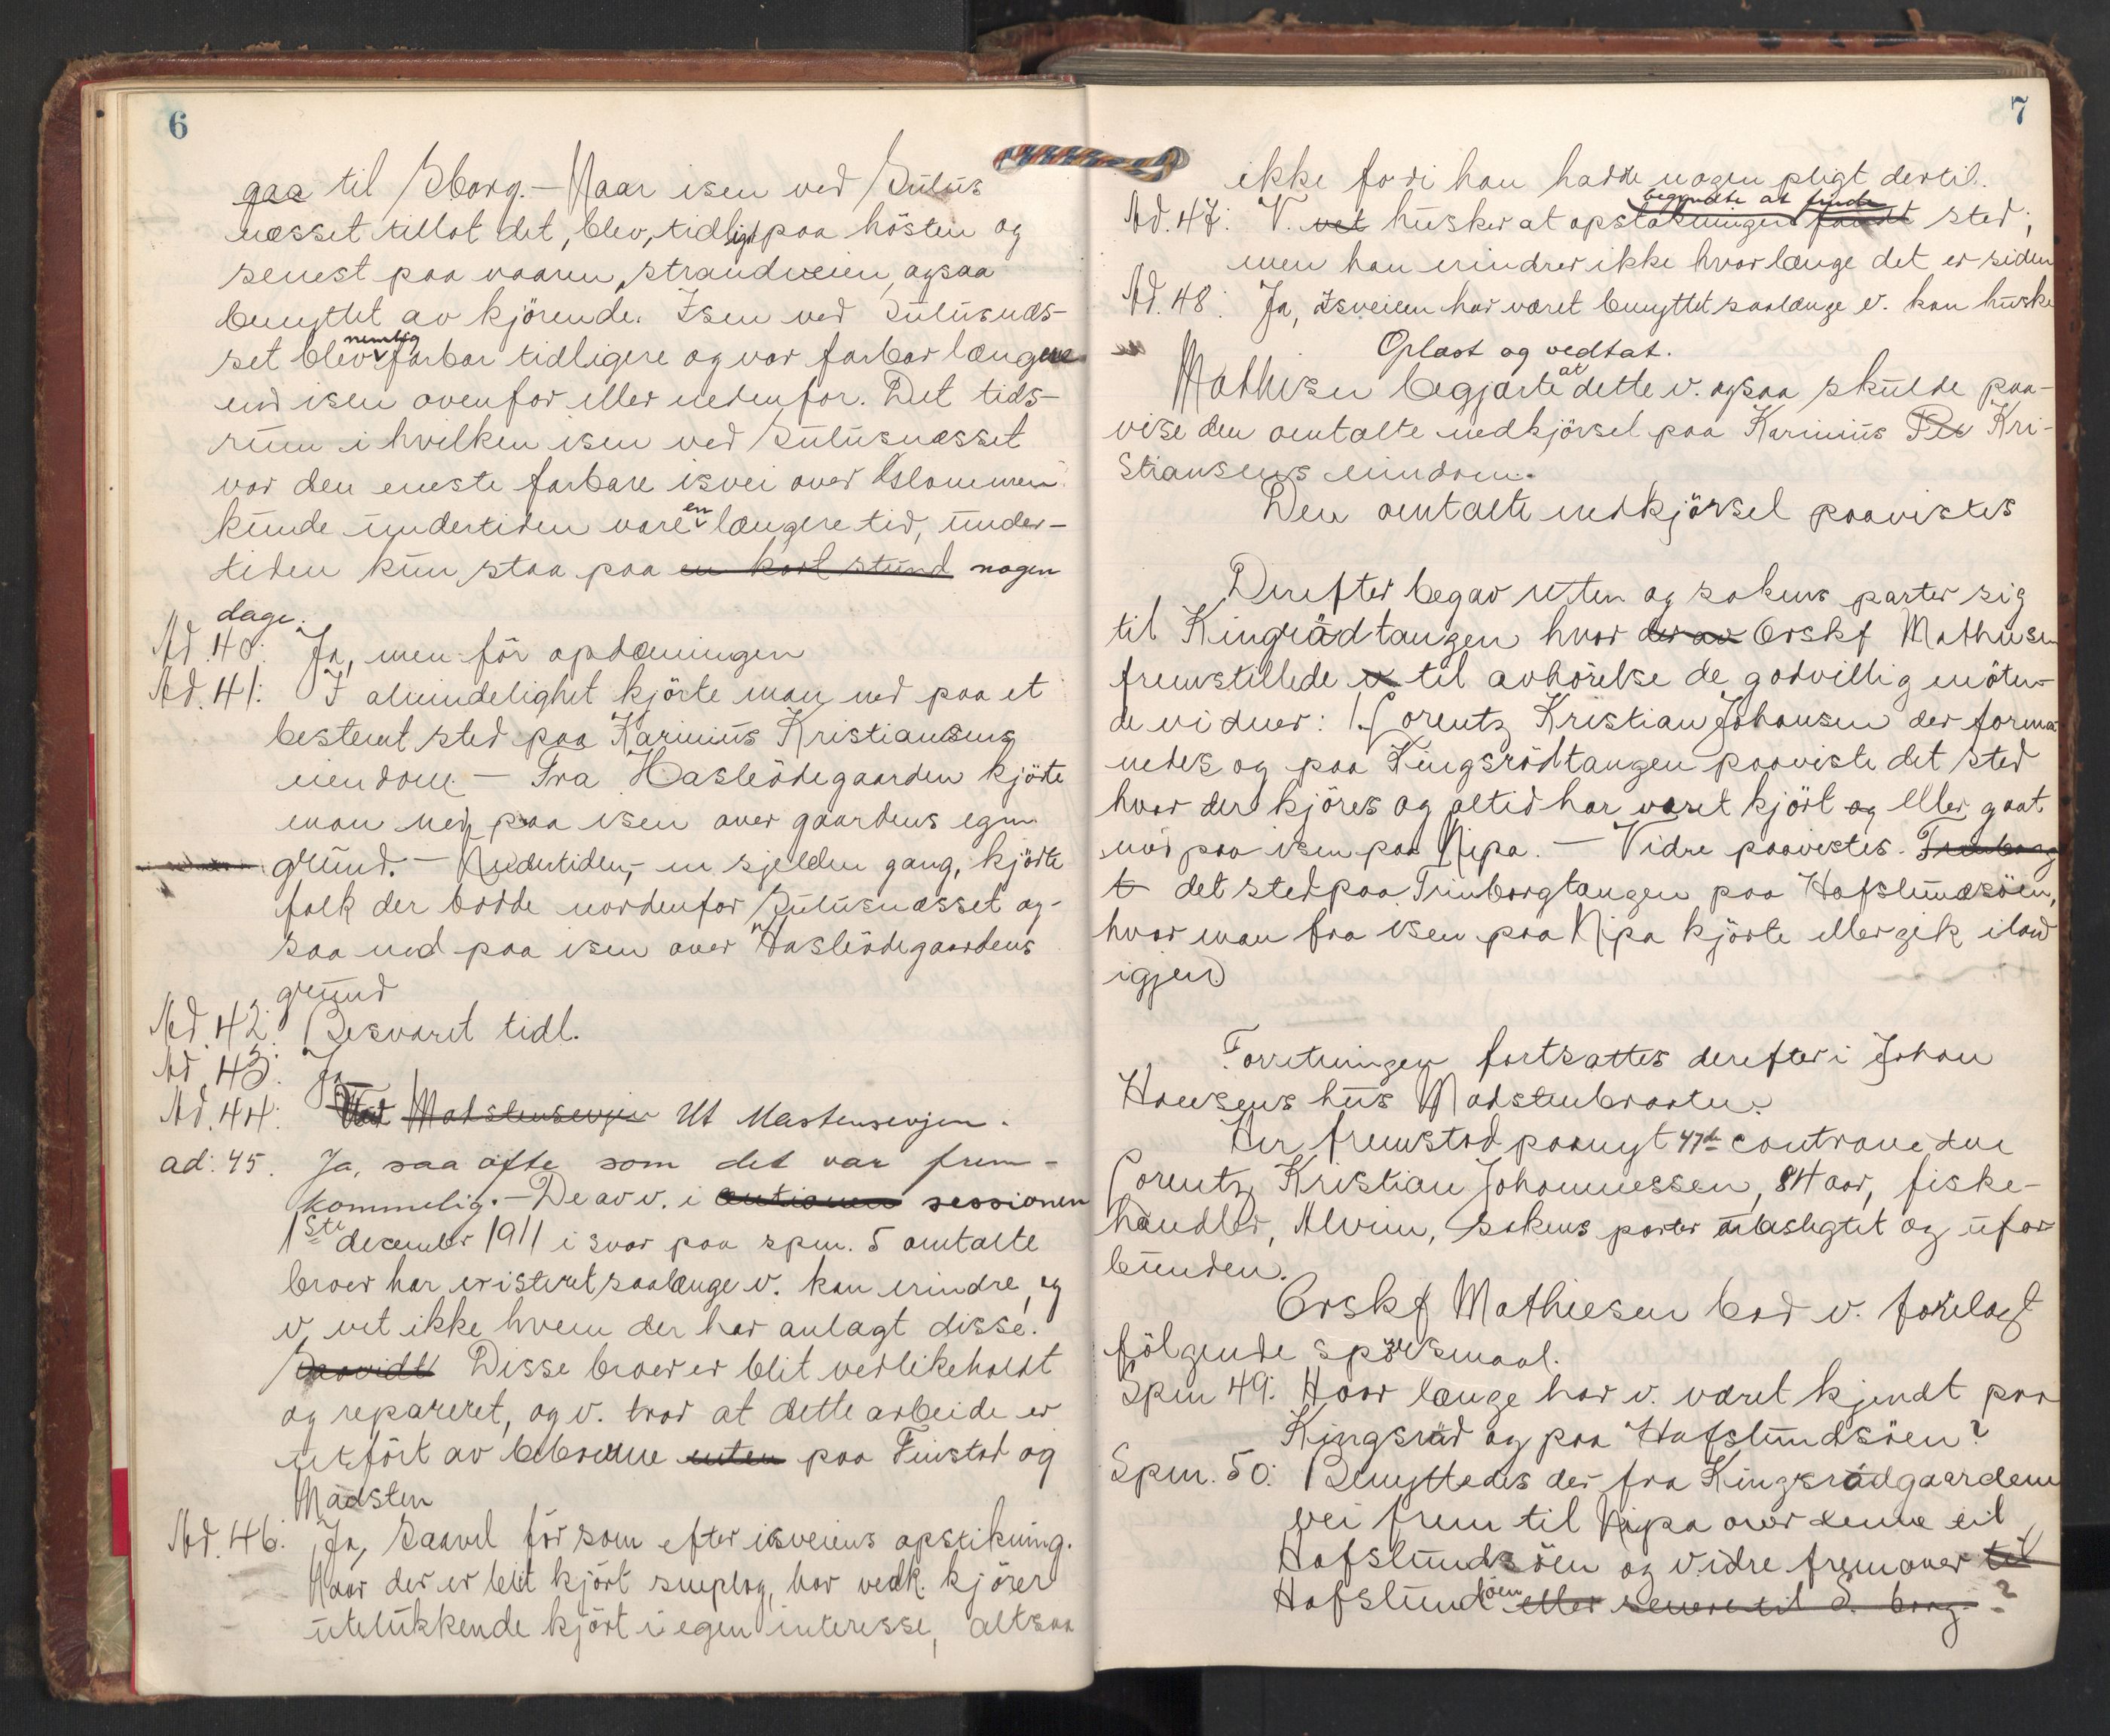 6
gaa til Sborg. - Naar isen ved Sulus
næsset tillot det, blev, tidligst paa hösten og
senest paa vaaren, strandveien, ogsaa
benyttet av kjörende. Isen ved Sulusnæs-
set blev nemlig farbar tidligere og var farbar længere
end isen ovenfor eller nedenfor. Det tids-
rum i hvilken isen ved Sulusnæsset
var den eneste farbare isvei over Glommen
kunde undertiden vare en længere tid, under-
tiden kun staa paa en kort stund nogen
dage.
Ad. 40: Ja, men för opdæmningen
Ad. 41: I almindelighet kjörte man ned paa et
bestemt sted paa Karinius Kristiansens
eiendom. - Fra Hasleödegaarden kjörte
man ned paa isen over gaardens egen
grund. - Undertiden, en sjelden gang, kjörte
folk der bodde nordenfor Sulusnæsset og-
saa ned paa isen over Hasleödegaardens
grund
Ad. 42: Besvaret tidl.
Ad. 43: Ja
Ad. 44: Ved Madstensevjen Ut Mastensevjen.
ad: 45. Ja, saa ofte som det var frem-
kommelig. - De av v. i sessionen
1ste december 1911 i svar paa spm. 5 omtalte
broer har existeret saalænge v. kan erindre, og
v. vet ikke hvem der har anlagt disse.
Saavidt Disse broer er blit vedlikeholdt
og repareret, og v. tror at dette arbeide er
utfört av beboerne enten paa Finstad og
Madsten
Ad. 46: Ja, saavel för som efter isveiens opstikning.
Naar der er blit kjört sneplog, har vedk. kjörer
utelukkende kjört i egen interesse, altsaa
7
ikke fordi han hadde nogen pligt dertil.
begyndte at finde
Ad. 47: V. vet husker at opstakningen fandt sted;
men han erindrer ikke hvor længe det er siden
Ad. 48: Ja, isveien har været benyttet saalænge v. kan huske
Oplæst og vedtat.
Mathisen begjærte at dette v. ogsaa skulde paa-
vise den omtalte nedkjörsel paa Karinius Pe Kri-
stiansens eiendom.
Den omtalte nedkjörsel paavistes
Derefter begav retten og sakens parter sig
til Kingrädtangen hvor der av Orskf Mathiesen
fremstillede til avhörelse de godvillig möten-
de vidner: 1. Lorentz Kristian Johansen der forma
nedes og paa Kingsrödtangen paaviste det sted
hvor der kjöres og altid har været kjört og eller gaat
ned paa isen paa Nipa. - Vidre paavistes Trinborg
t det sted paa Trinborgtangen paa Hafslundsöen,
hvor man fra isen paa Nipa kjörte eller gik iland
igjen
Forretningen fortsattes derefter i Johan
Hansens hus Madstenbraaten.
Her fremstod paanyt 47de contravidne
Lorentz Kristian Johannessen, 84 aar, fiske-
handler, Alvim, sakens parter ubeslegtet og ufor
bunden.
Orskf Mathiesen bad v. forelagt
fölgende spörsmaal.
Spm 49: Hvor længe har v. været kjendt paa
Kingsräd og paa Hafslundsöen?
Spm. 50: Benyttedes der fra Kingsrädgaardene
vei frem til Nipa over denne til
Hafslundsöen og vidre fremover til
Hafslundsöen eller senere til S. borg. ?